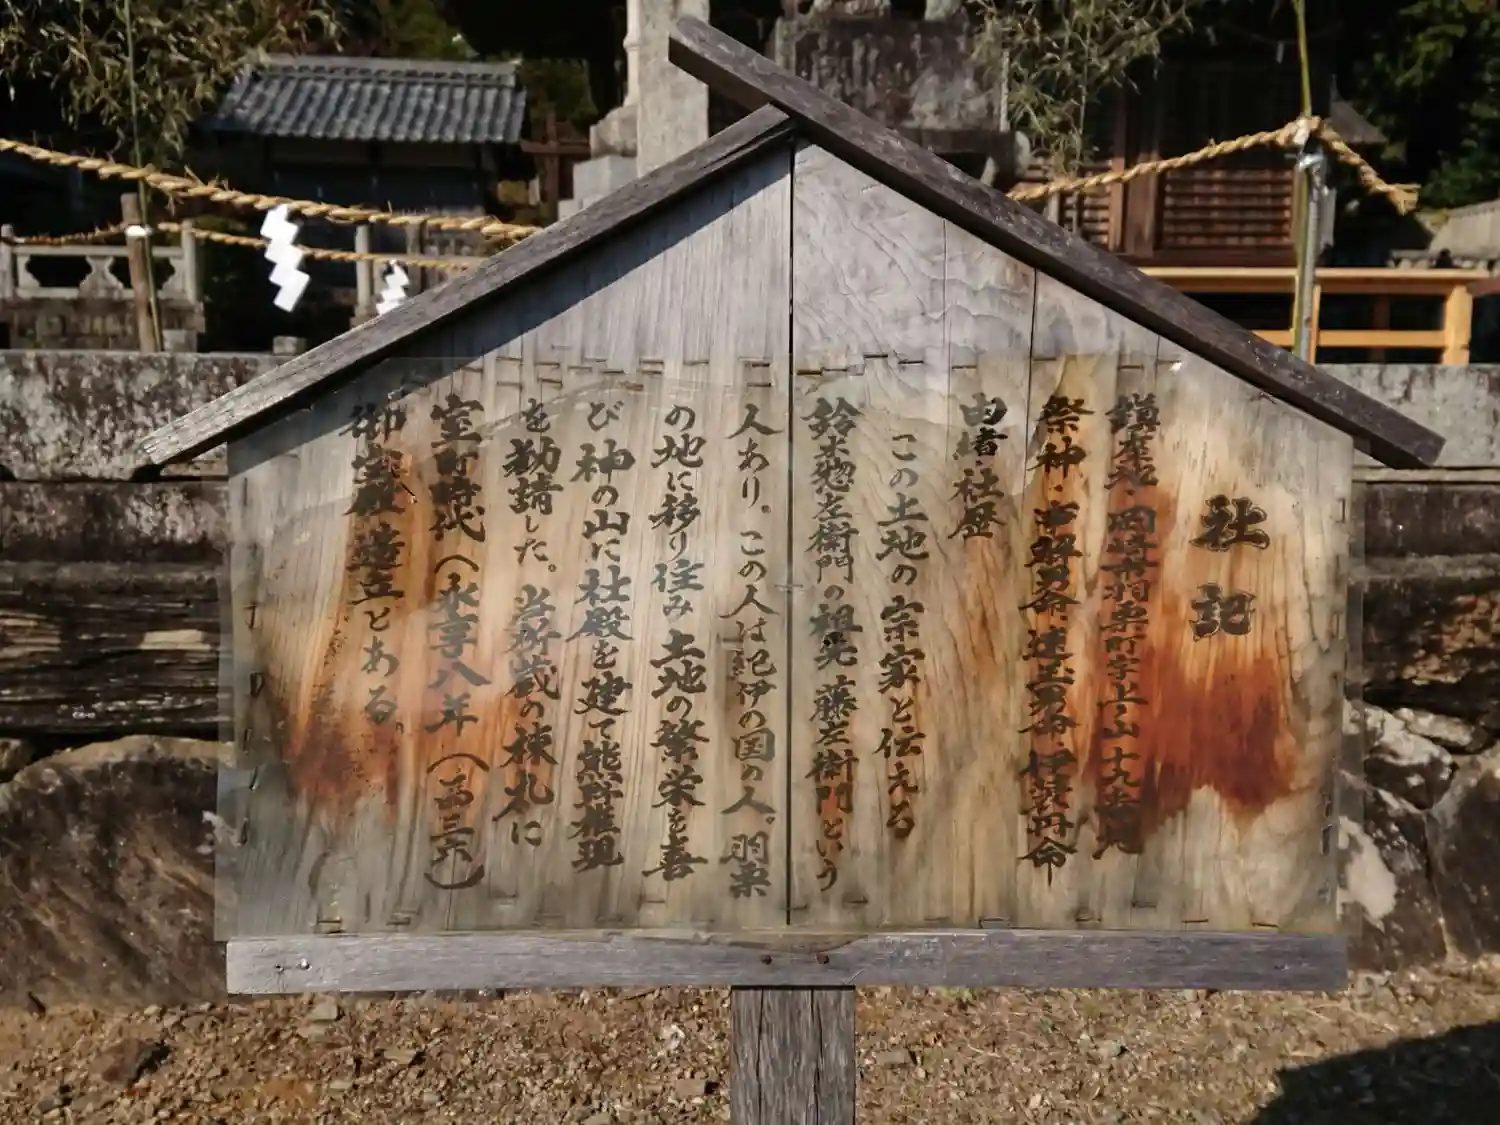 社記
鎮座地・岡崎市羽栗町字上ノ山十九番地
祭神・事解男命 速玉男命 伊弉冊命
由緒・社歴
この土地の宗家と伝える
鈴木惣左衛門の祖先 藤左衛門という
人あり。この人は紀伊の国の人。羽栗
の地に移り住み 土地の繁栄を喜
び 神の山に社殿を建て熊野権現
を勧請した。当所蔵の棟札に
室町時代(永享八年(一四三六)
御宝殿 造立とある。